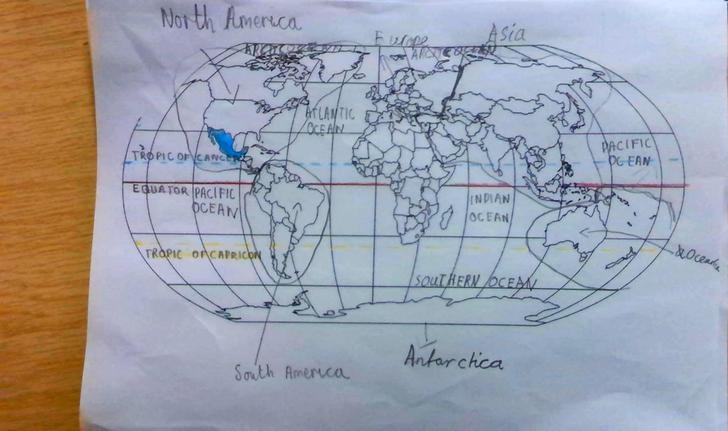 North America
Europe
Asia
ARCTIC OCEAN
ARCTIC OCEAN
ATLANTIC
OCEAN
PACIFIC
OCEAN
TROPIC OF CANCER
EQUATOR
PACIFIC
OCEAN
INDIAN
OCEAN
TROPIC OF CAPRICON
Oceania
SOUTHERN OCEAN
South America
Antarctica